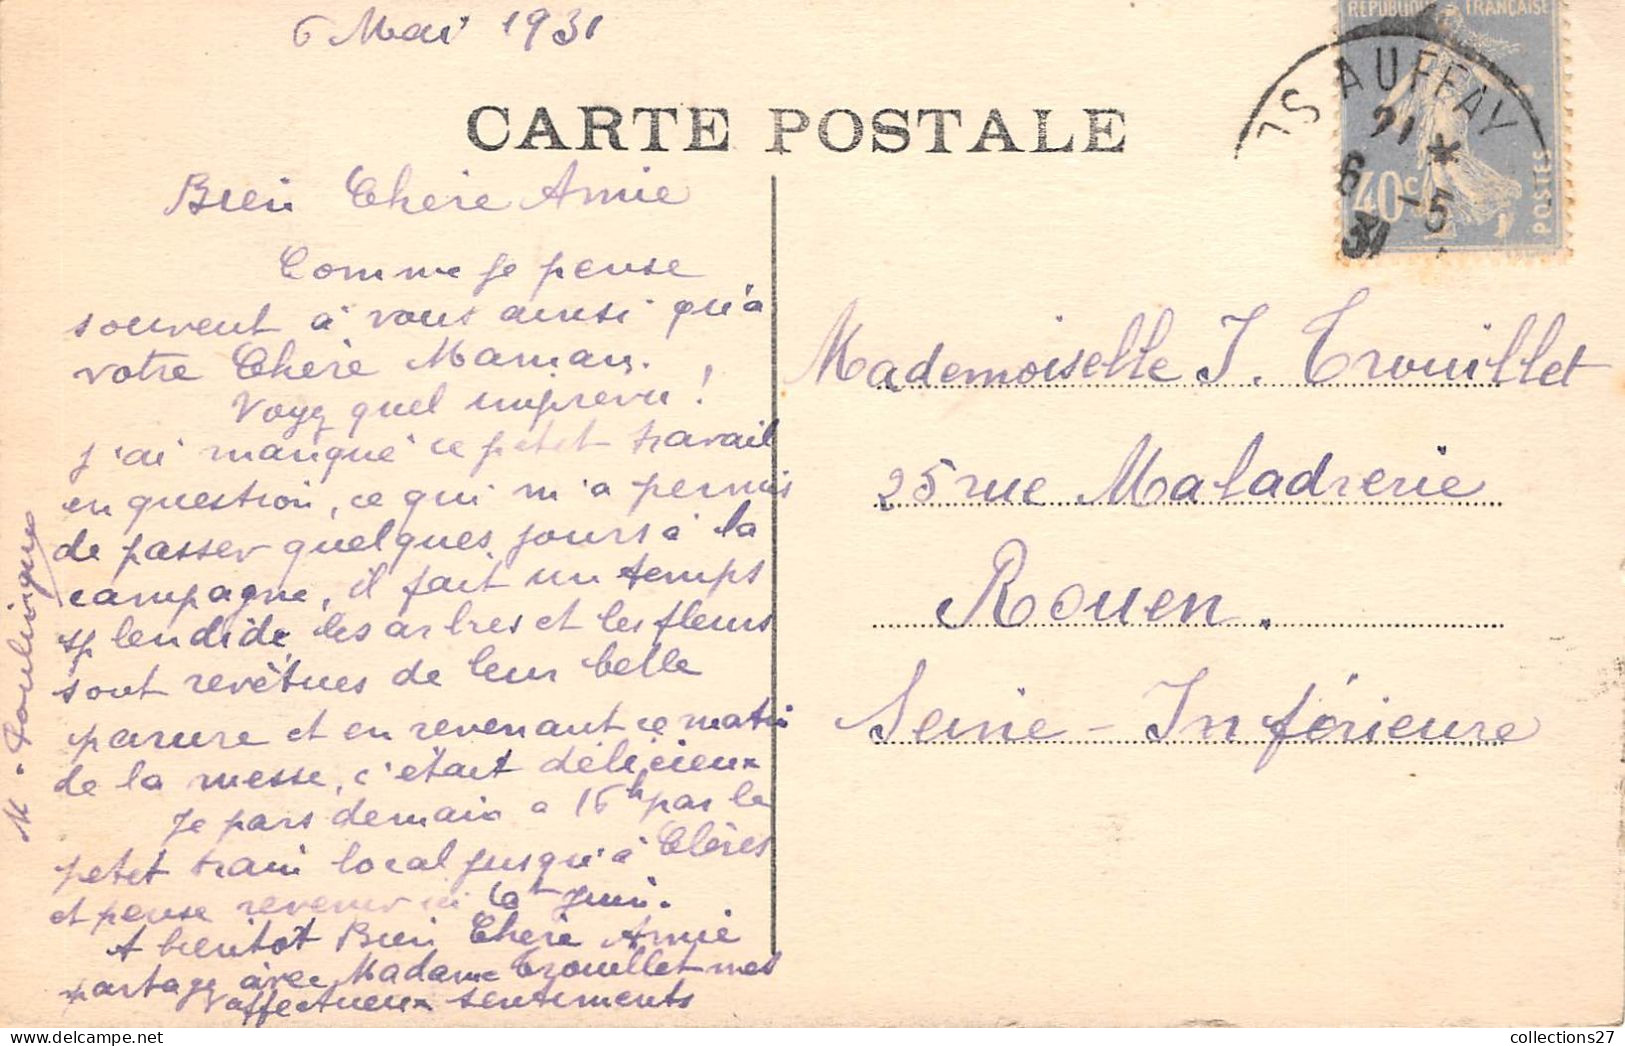 6 Mai 1931
CARTE POSTALE
REPUBLIQUE FRANÇAISE
40c
POSTES
AUFFAY
21 *
6 -5
31
Bien Chère Amie
Comme je pense
souvent à vous ainsi qu'à
votre Chère Maman.
Voyez quel imprévu !
j'ai manqué ce petit travail
en question, ce qui m'a permis
de passer quelques jours à la
campagne, il fait un temps
splendide, les arbres et les fleurs
sont revêtues de leur belle
parure et en revenant ce matin
de la messe, c'était délicieux
Je pars demain à 16h par le
petit train local jusqu'à Clères
et pense revenir ici Juin.
A bientôt Bien Chère Amie
partagez avec Madame Trouillet mes
affectueux sentiments
M. Poulingue
Mademoiselle J. Trouillet
25 rue Maladrerie
Rouen.
Seine-Inférieure
collections27